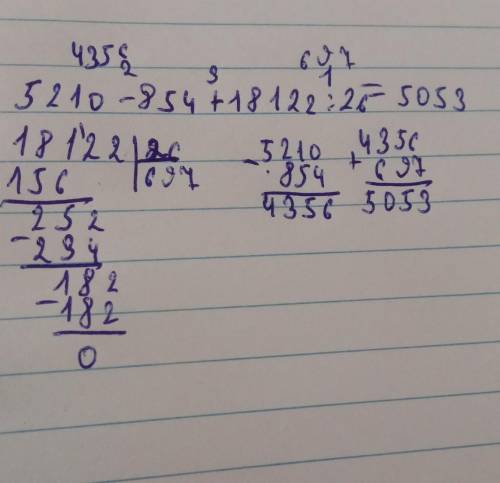 4356 697
2 3 1
5210 - 854 + 18122 : 26 = 5053
18122 | 26
156 | 697
252
- 234
182
- 182
0
- 5210
854
4356
+ 4356
697
5053